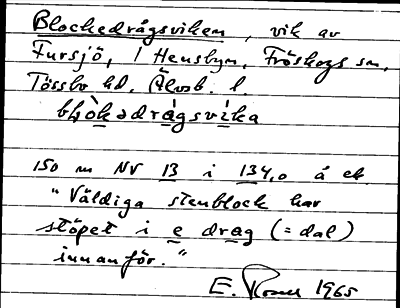 Blockedrågsviken, vik av
Fursjö, i Hensbyn, Fröskogs sn,
Tössbo hd. Älvsb. l.
blòkədrágsvìka
150 m NV 13 i 134,0 å ek
"Väldiga stenblock har
stöpet i e drag (= dal)
innanför."
E. 1965